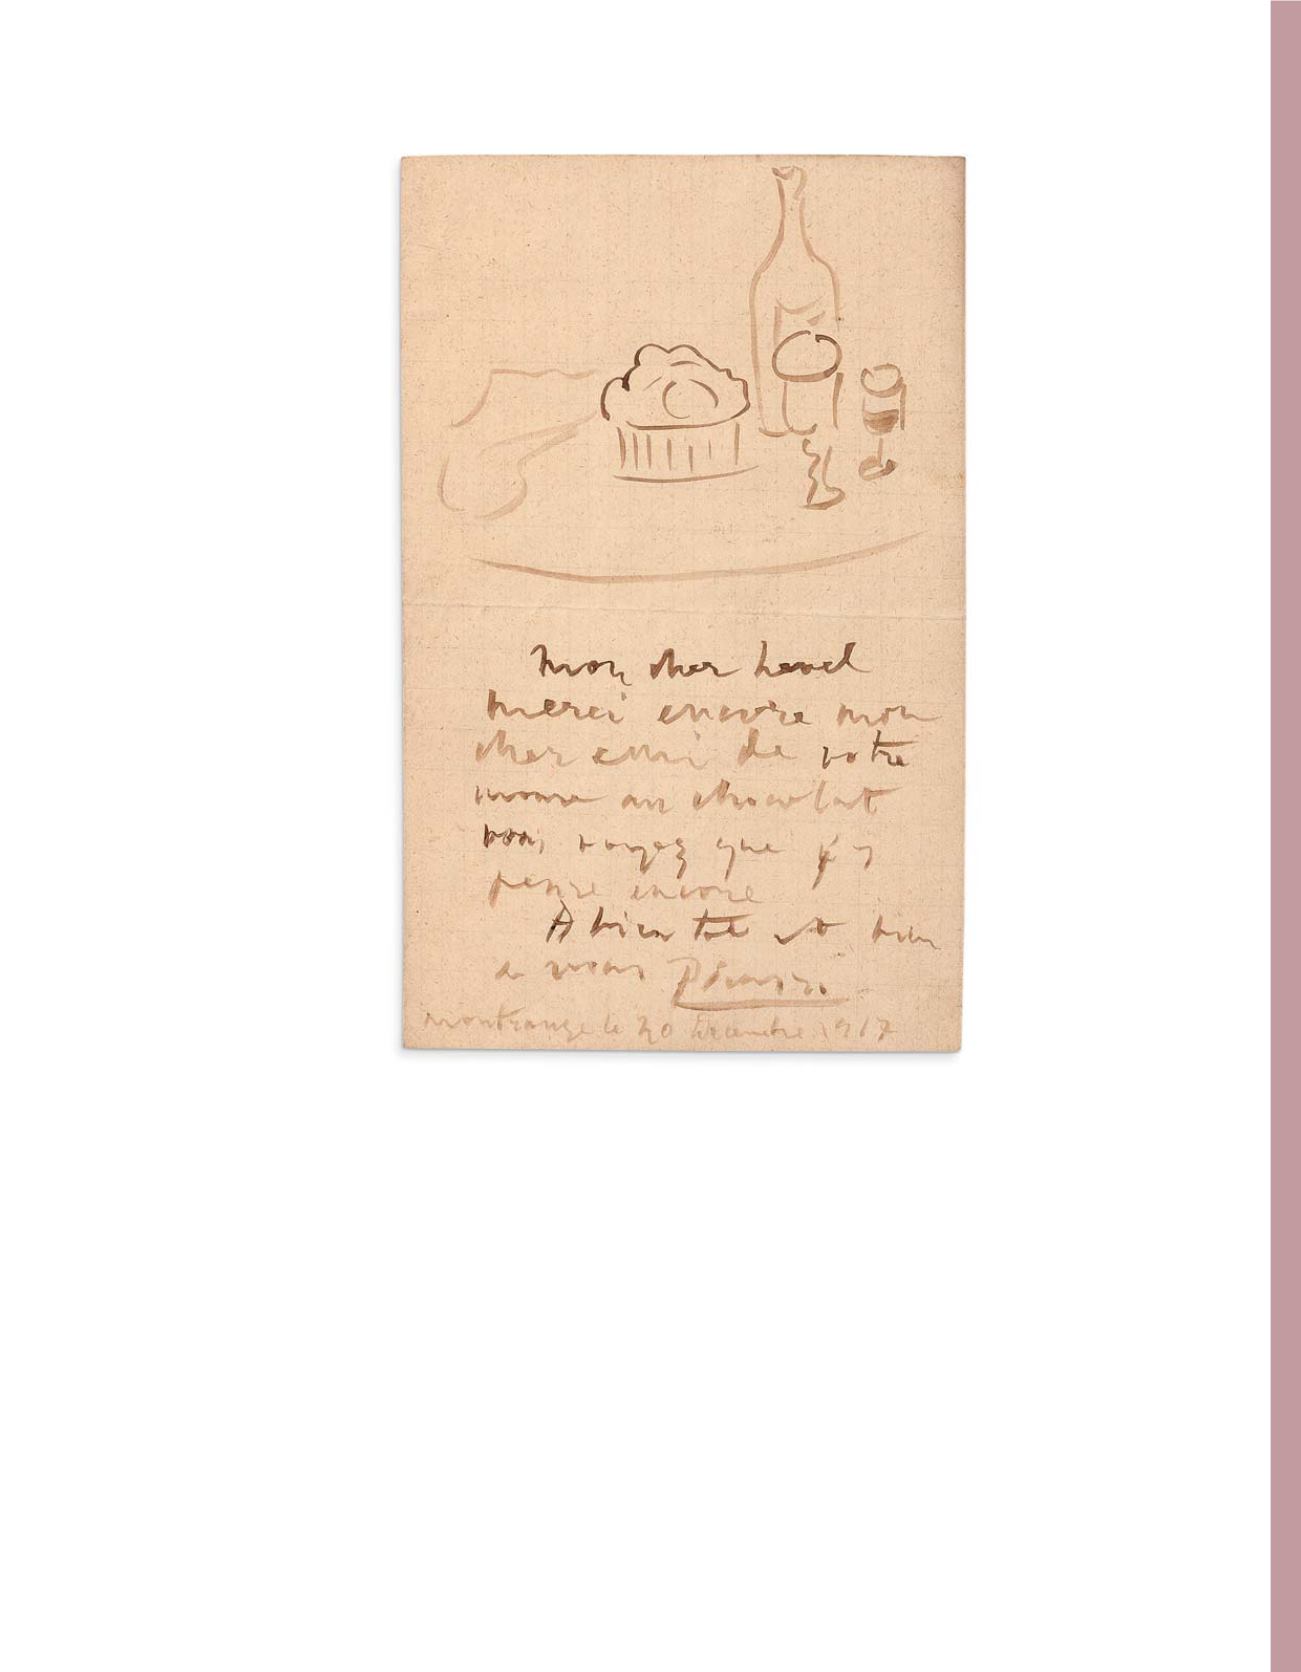 mon cher Level
merci encore mon
cher ami de votre
mousse au chocolat
vous voyez que j'y
pense encore
A bien tot et bien
a vous Picasso
montrouge le 20 Decembre 1917